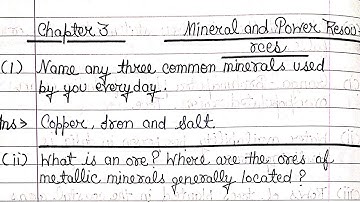 Chapter 3 Mineral and Power Resou-
rces
(i) Name any three common minerals used
by you everyday.
Ans> Copper, Iron and Salt.
(ii) What is an ore? Where are the ores of
metallic minerals generally located?